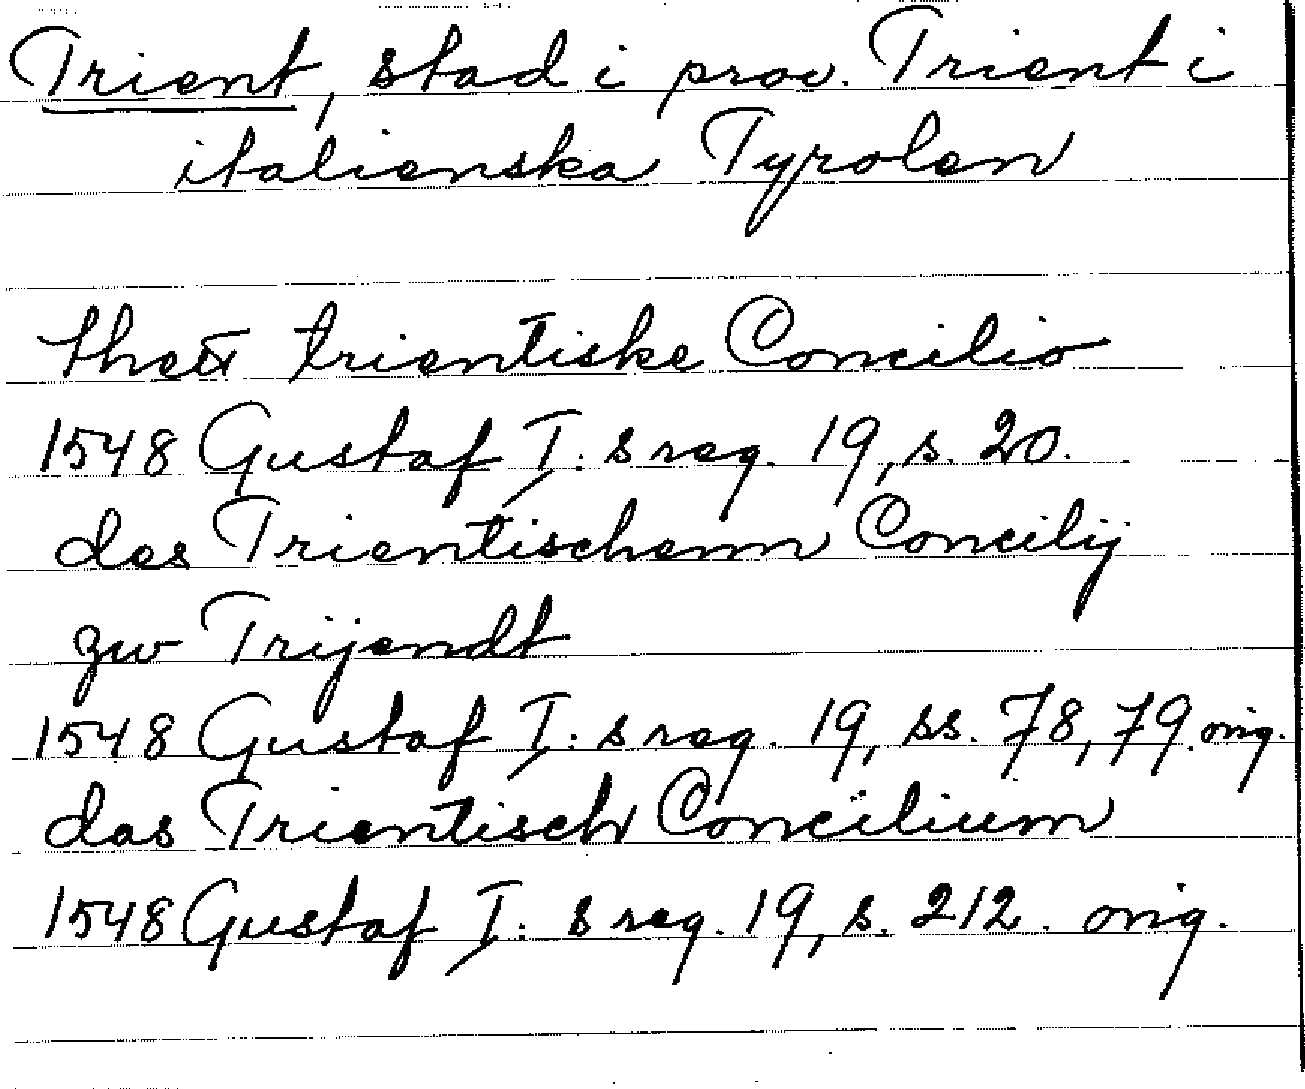 Trient, stad i prov. Trient i
italienska Tyrolen
thett trientiske Concilio
1548 Gustaf I: s reg. 19, s. 20.
des Trientischenn Concilij
zw Trijendt
1548 Gustaf I: s reg. 19, ss. 78, 79. orig.
das Trientisch Concilium
1548 Gustaf I: s reg. 19, s. 212. orig.